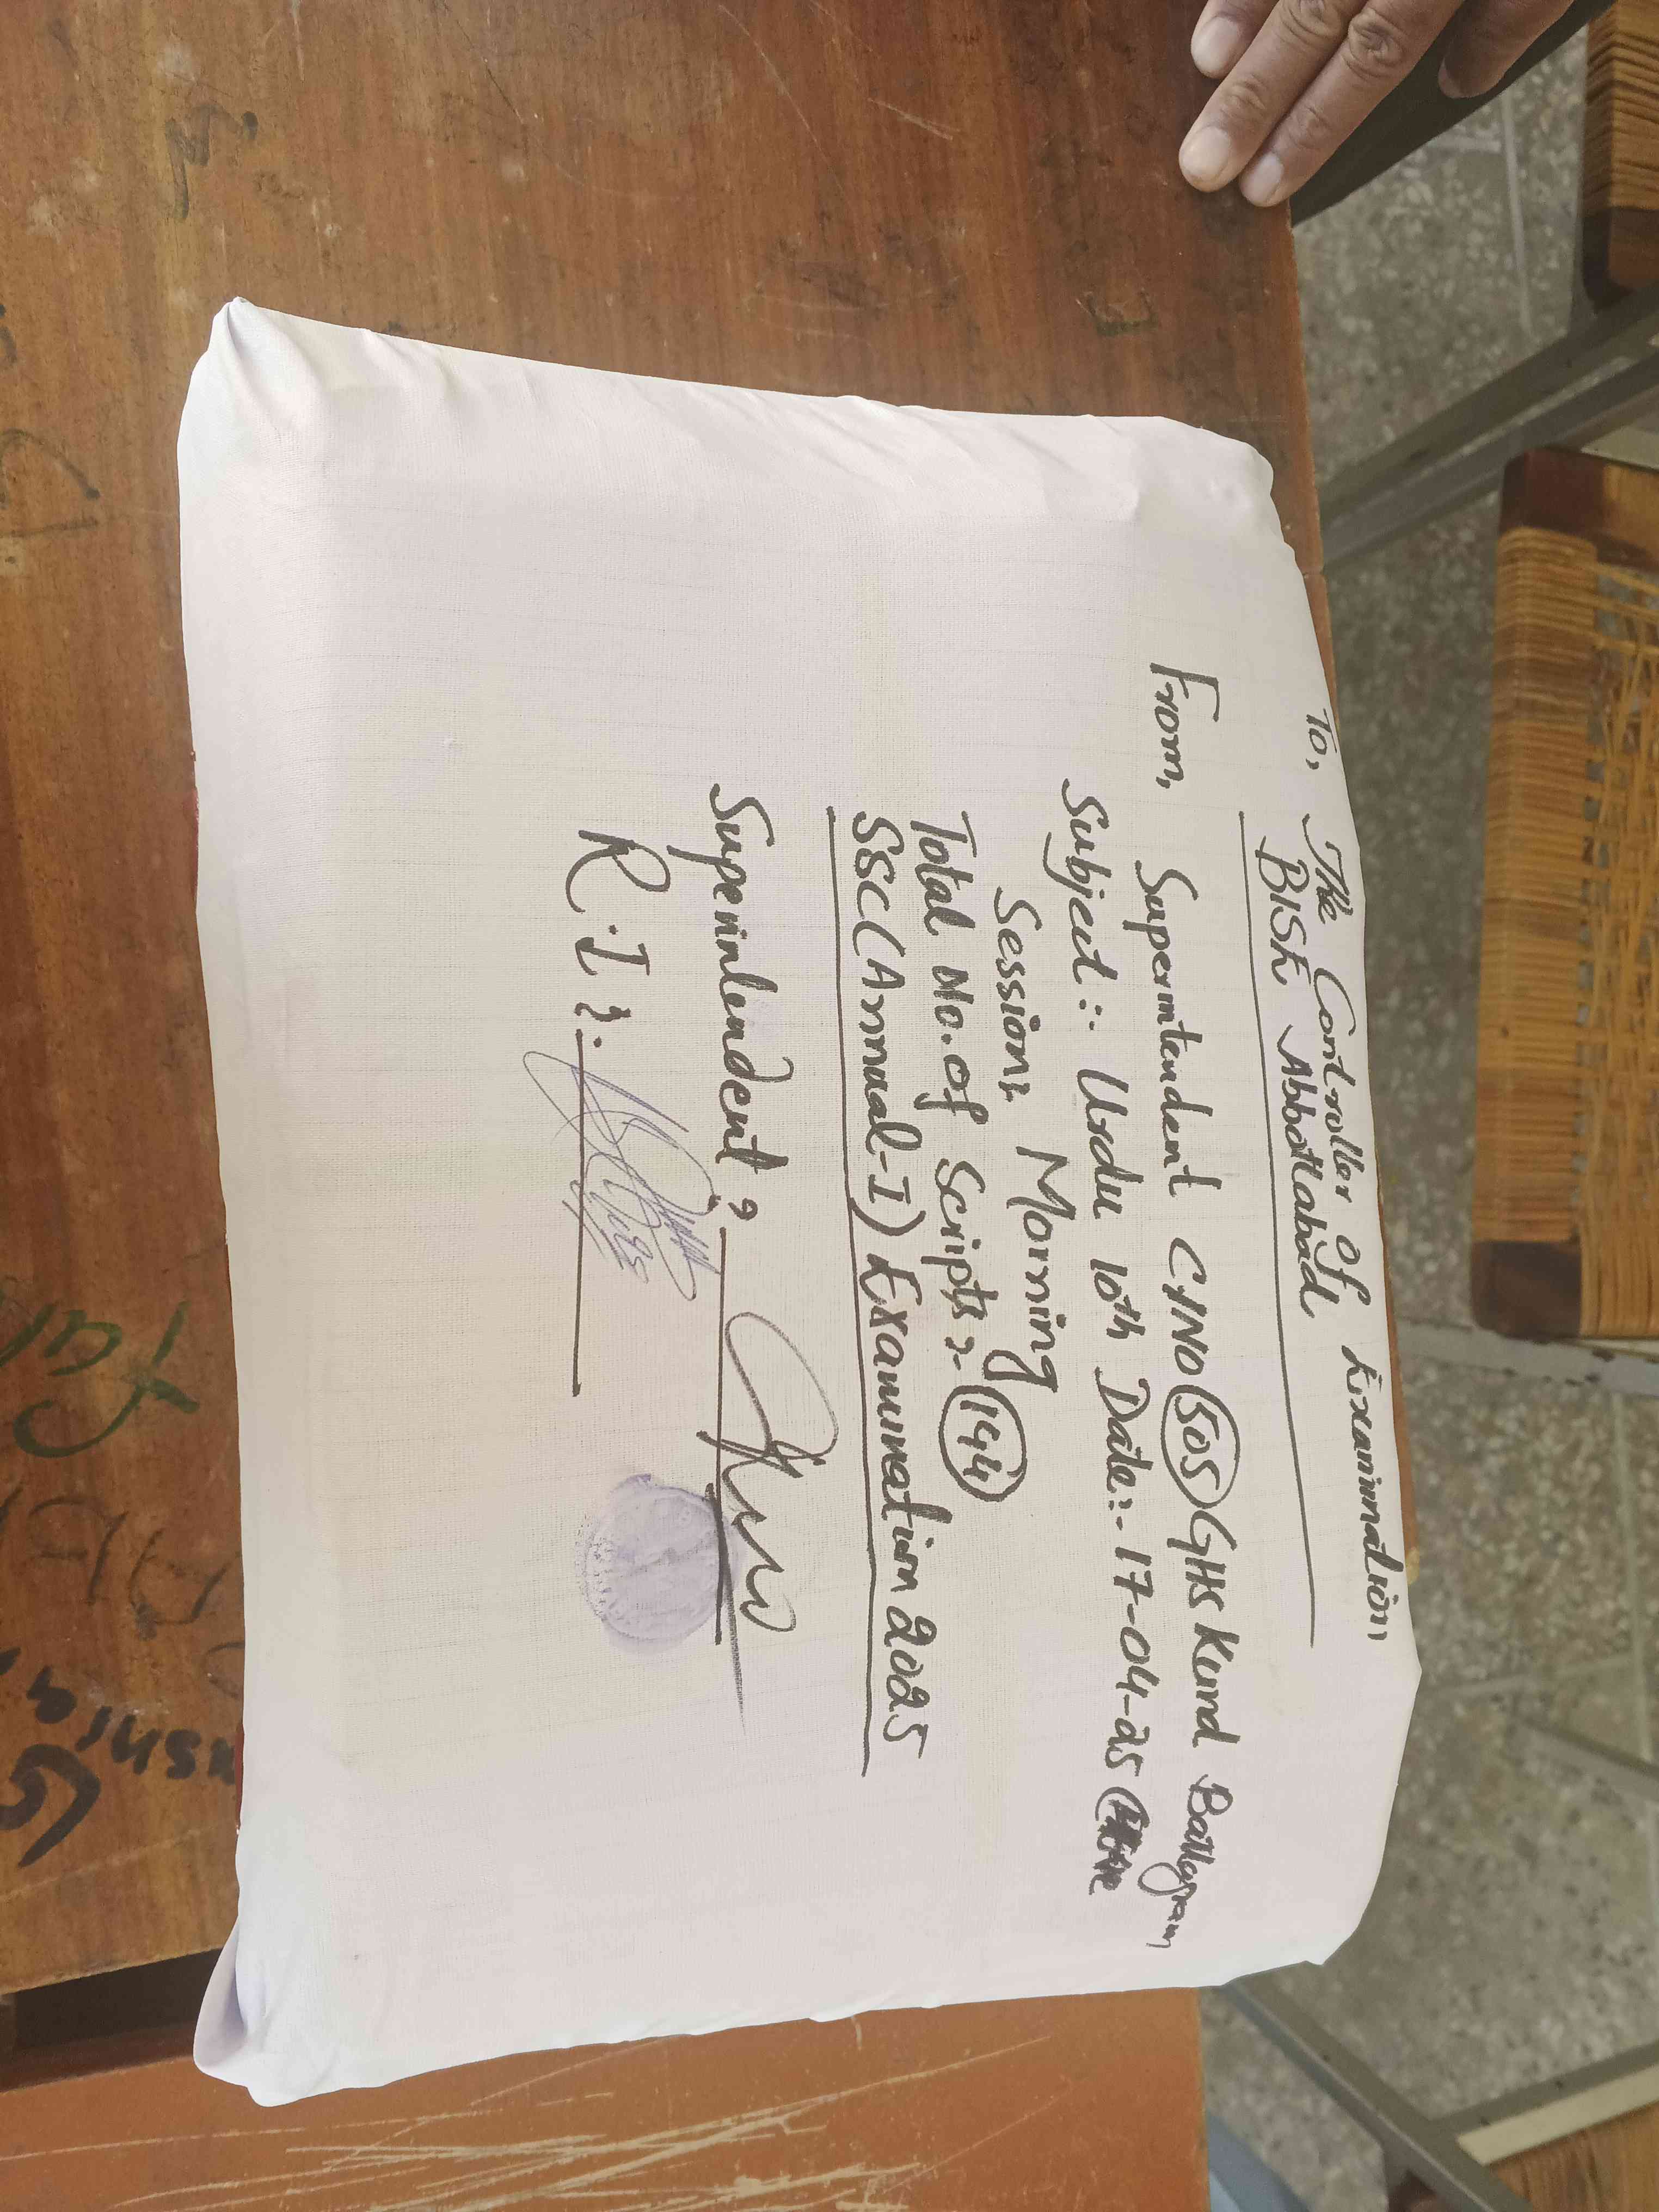 To, The Controller of Examination
BISE Abbottabad
From, Superintendent C/NO 505 GHS Kund Battagram
Subject:- Urdu 10th Date:- 17-04-25
Session:- Morning
Total No. of Scripts:- 144
SSC (Annual-I) Examination 2025
Superintendent:
R.I: